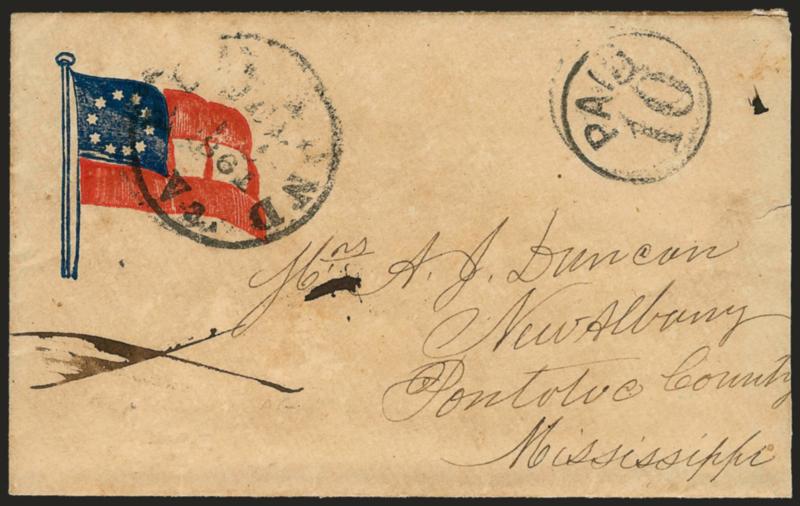 PAID
10
1861
VA.
Mrs A. J. Duncan
New Albany
Pontotoc County
Mississippi